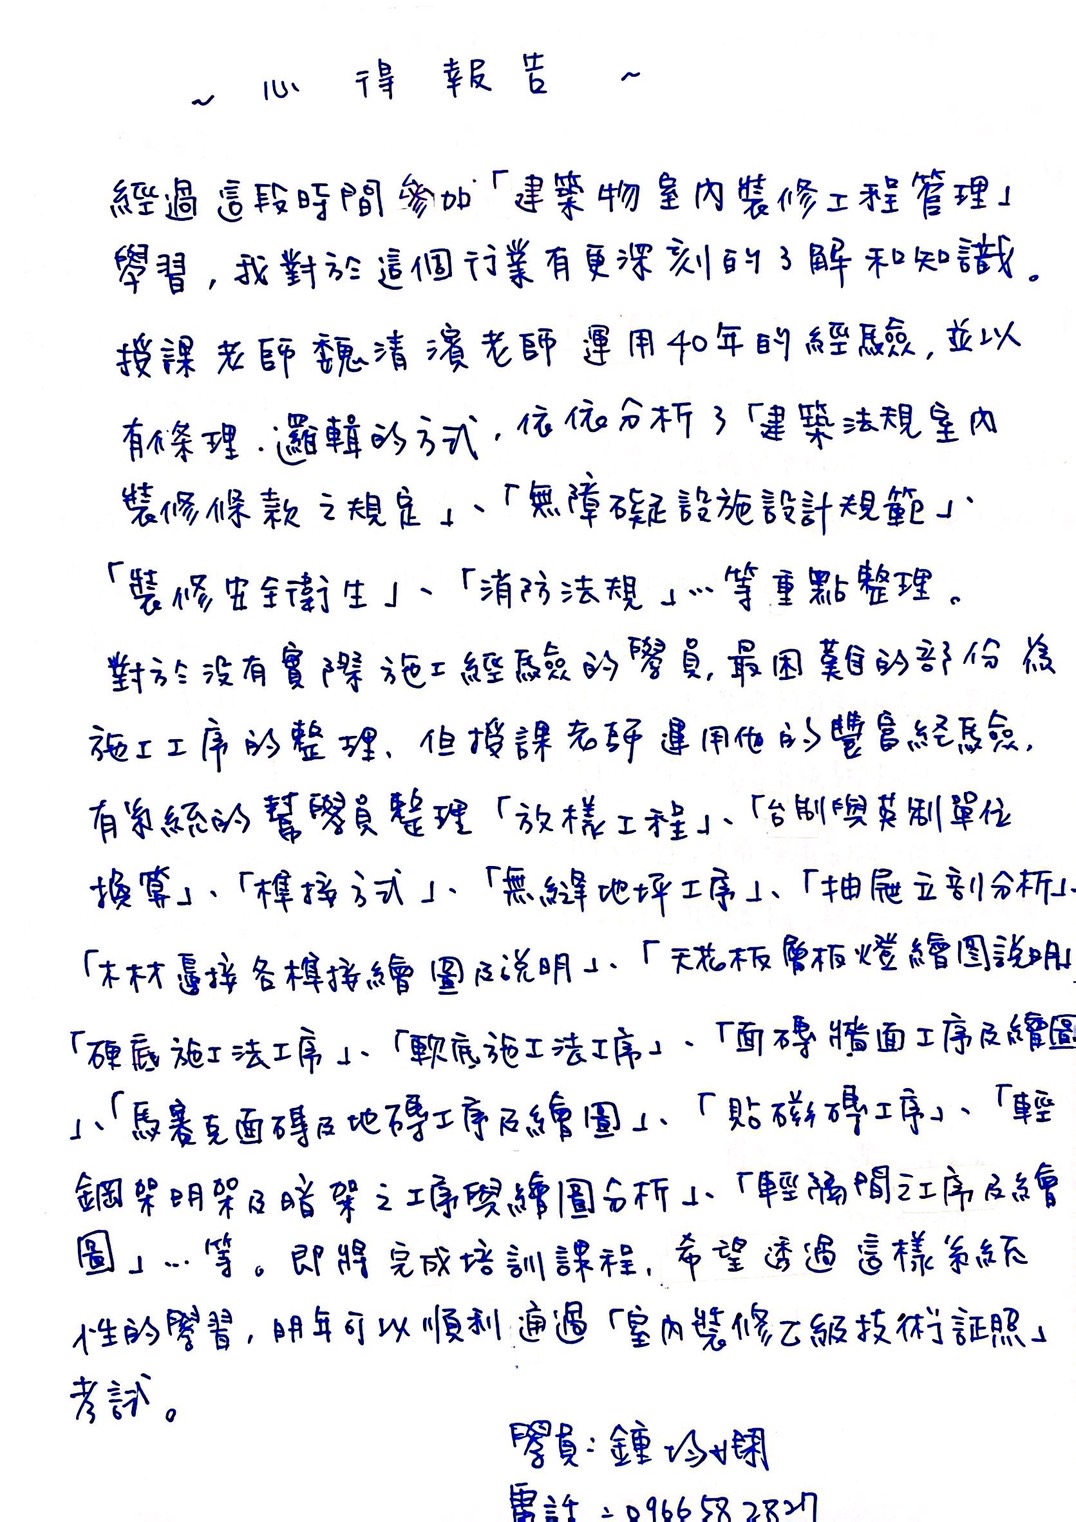 ~ 心 得 報 告 ~
經過這段時間參加「建築物室內裝修工程管理」
學習,我對於這個行業有更深刻的了解和知識。
授課老師魏清濱老師運用40年的經驗,並以
有條理.邏輯的方式,依依分析了「建築法規室內
裝修條款之規定」、「無障礙設施設計規範」、
「裝修安全衛生」、「消防法規」…等重點整理。
對於沒有實際施工經驗的學員,最困難的部份為
施工工序的整理、但授課老師運用他的豐富經驗,
有系統的幫學員整理「放樣工程」、「台制與英制單位
換算」、「榫接方式」、「無縫地坪工序」、「抽屜立剖分析」、
「木材壹接各榫接繪圖及說明」、「天花板層板燈繪圖說明」
「硬底施工法工序」、「軟底施工法工序」、「面磚牆面工序及繪圖
」、「馬賽克面磚及地磚工序及繪圖」、「貼磁磚工序」、「輕
鋼架明架及暗架之工序與繪圖分析」、「輕隔間之工序及繪
圖」…等。即將完成培訓課程,希望透過這樣系統
性的學習,明年可以順利通過「室內裝修乙級技術証照」
考試。
學員:鍾均嫻
電話:0966582827